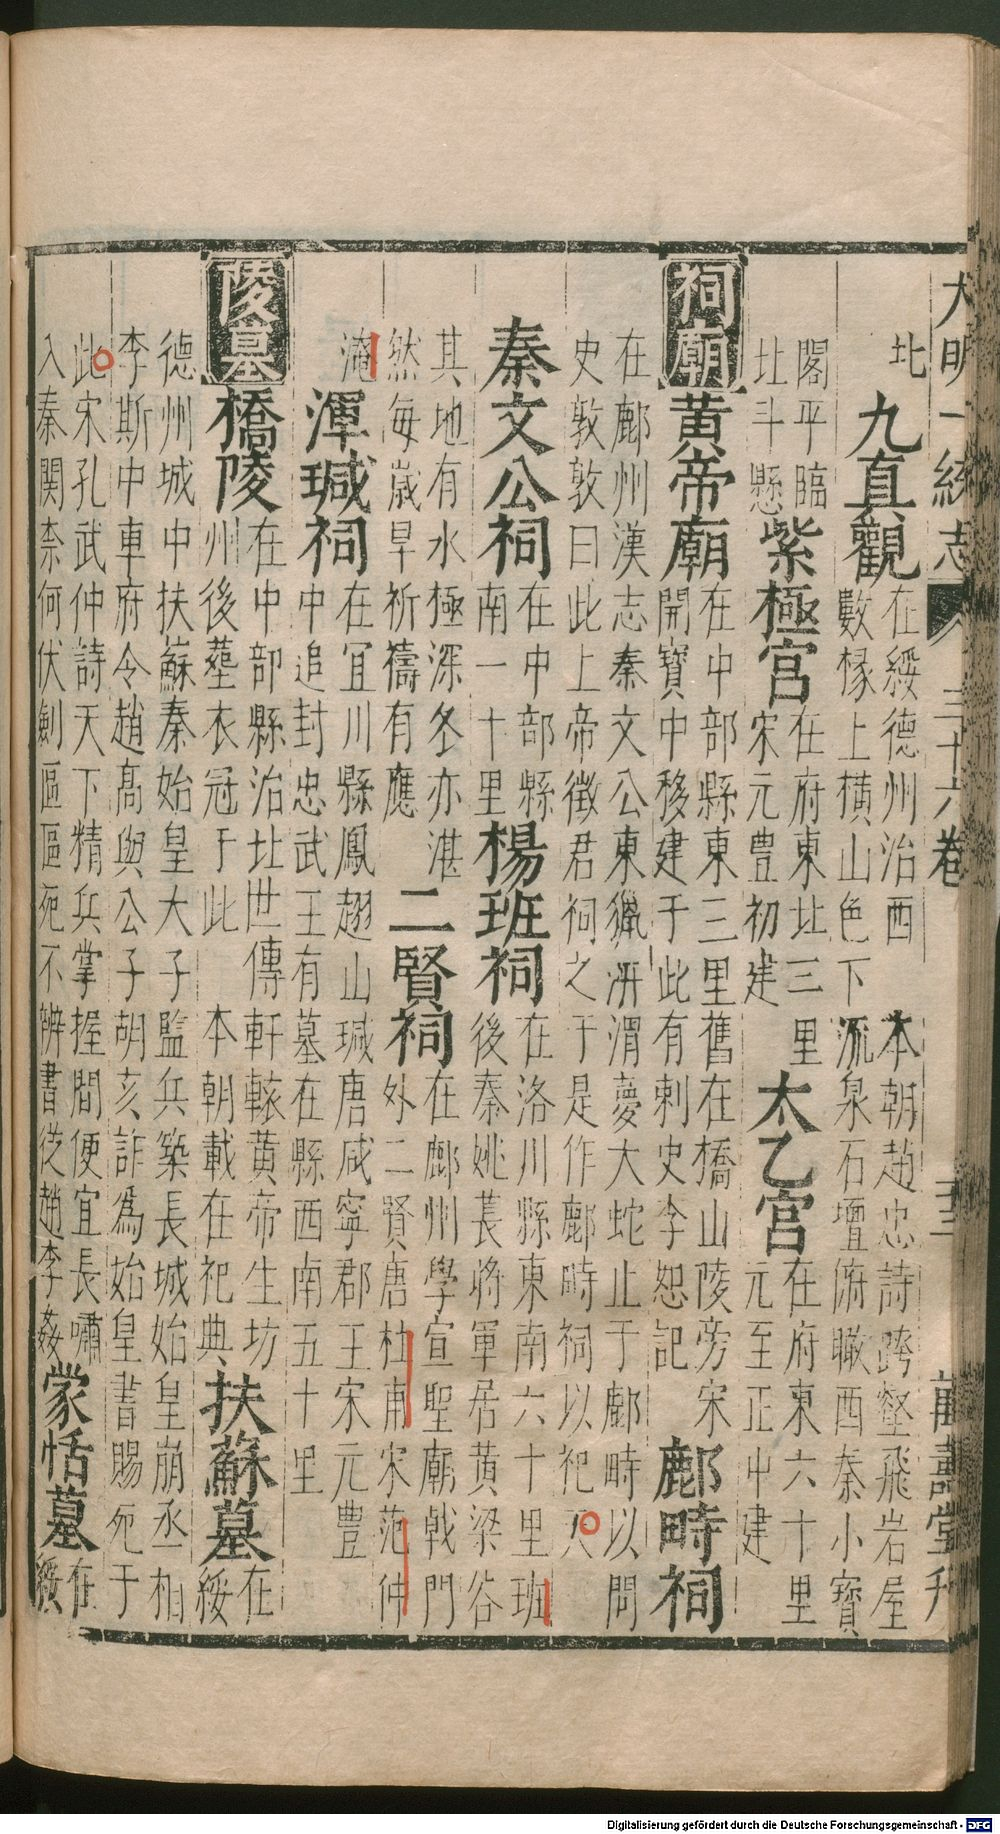 大明一統志 三十六卷 三 萬壽堂刊
北 九真觀 在綏德州治西 本朝趙忠詩跨壑飛岩屋
數椽上橫山色下流泉石壇俯瞰西秦小寶
閣平臨
北斗懸 紫極宮 在府東北三里
宋元豐初建 太乙宮 在府東六十里
元至正中建
祠廟 黃帝廟 在中部縣東三里舊在橋山陵旁宋
開寶中移建于此有刺史李恕記 鄜畤祠
在鄜州漢志秦文公東獵汧渭夢大蛇止于鄜畤以問
史敦敦曰此上帝徵君祠之于是作鄜畤祠以祀天
秦文公祠 在中部縣
南一十里 楊班祠 在洛川縣東南六十里班
後秦姚萇將軍居黃梁谷
其地有水極深冬亦湛
然每歲旱祈禱有應 二賢祠 在鄜州學宣聖廟戟門
外二賢唐杜甫宋范仲
淹 渾瑊祠 在宜川縣鳳翅山瑊唐咸寧郡王宋元豐
中追封忠武王有墓在縣西南五十里
陵墓 橋陵 在中部縣治北世傳軒轅黃帝生坊
州後塟衣冠于此 本朝載在祀典 扶蘇墓 在
綏
德州城中扶蘇秦始皇大子監兵築長城始皇崩丞相
李斯中車府令趙高與公子胡亥詐為始皇書賜死于
此宋孔武仲詩天下精兵掌握間便宜長嘯
入秦關柰何伏劍區區死不辨書從趙李姦 蒙恬墓 在
綏
Digitalisierung gefördert durch die Deutsche Forschungsgemeinschaft - DFG